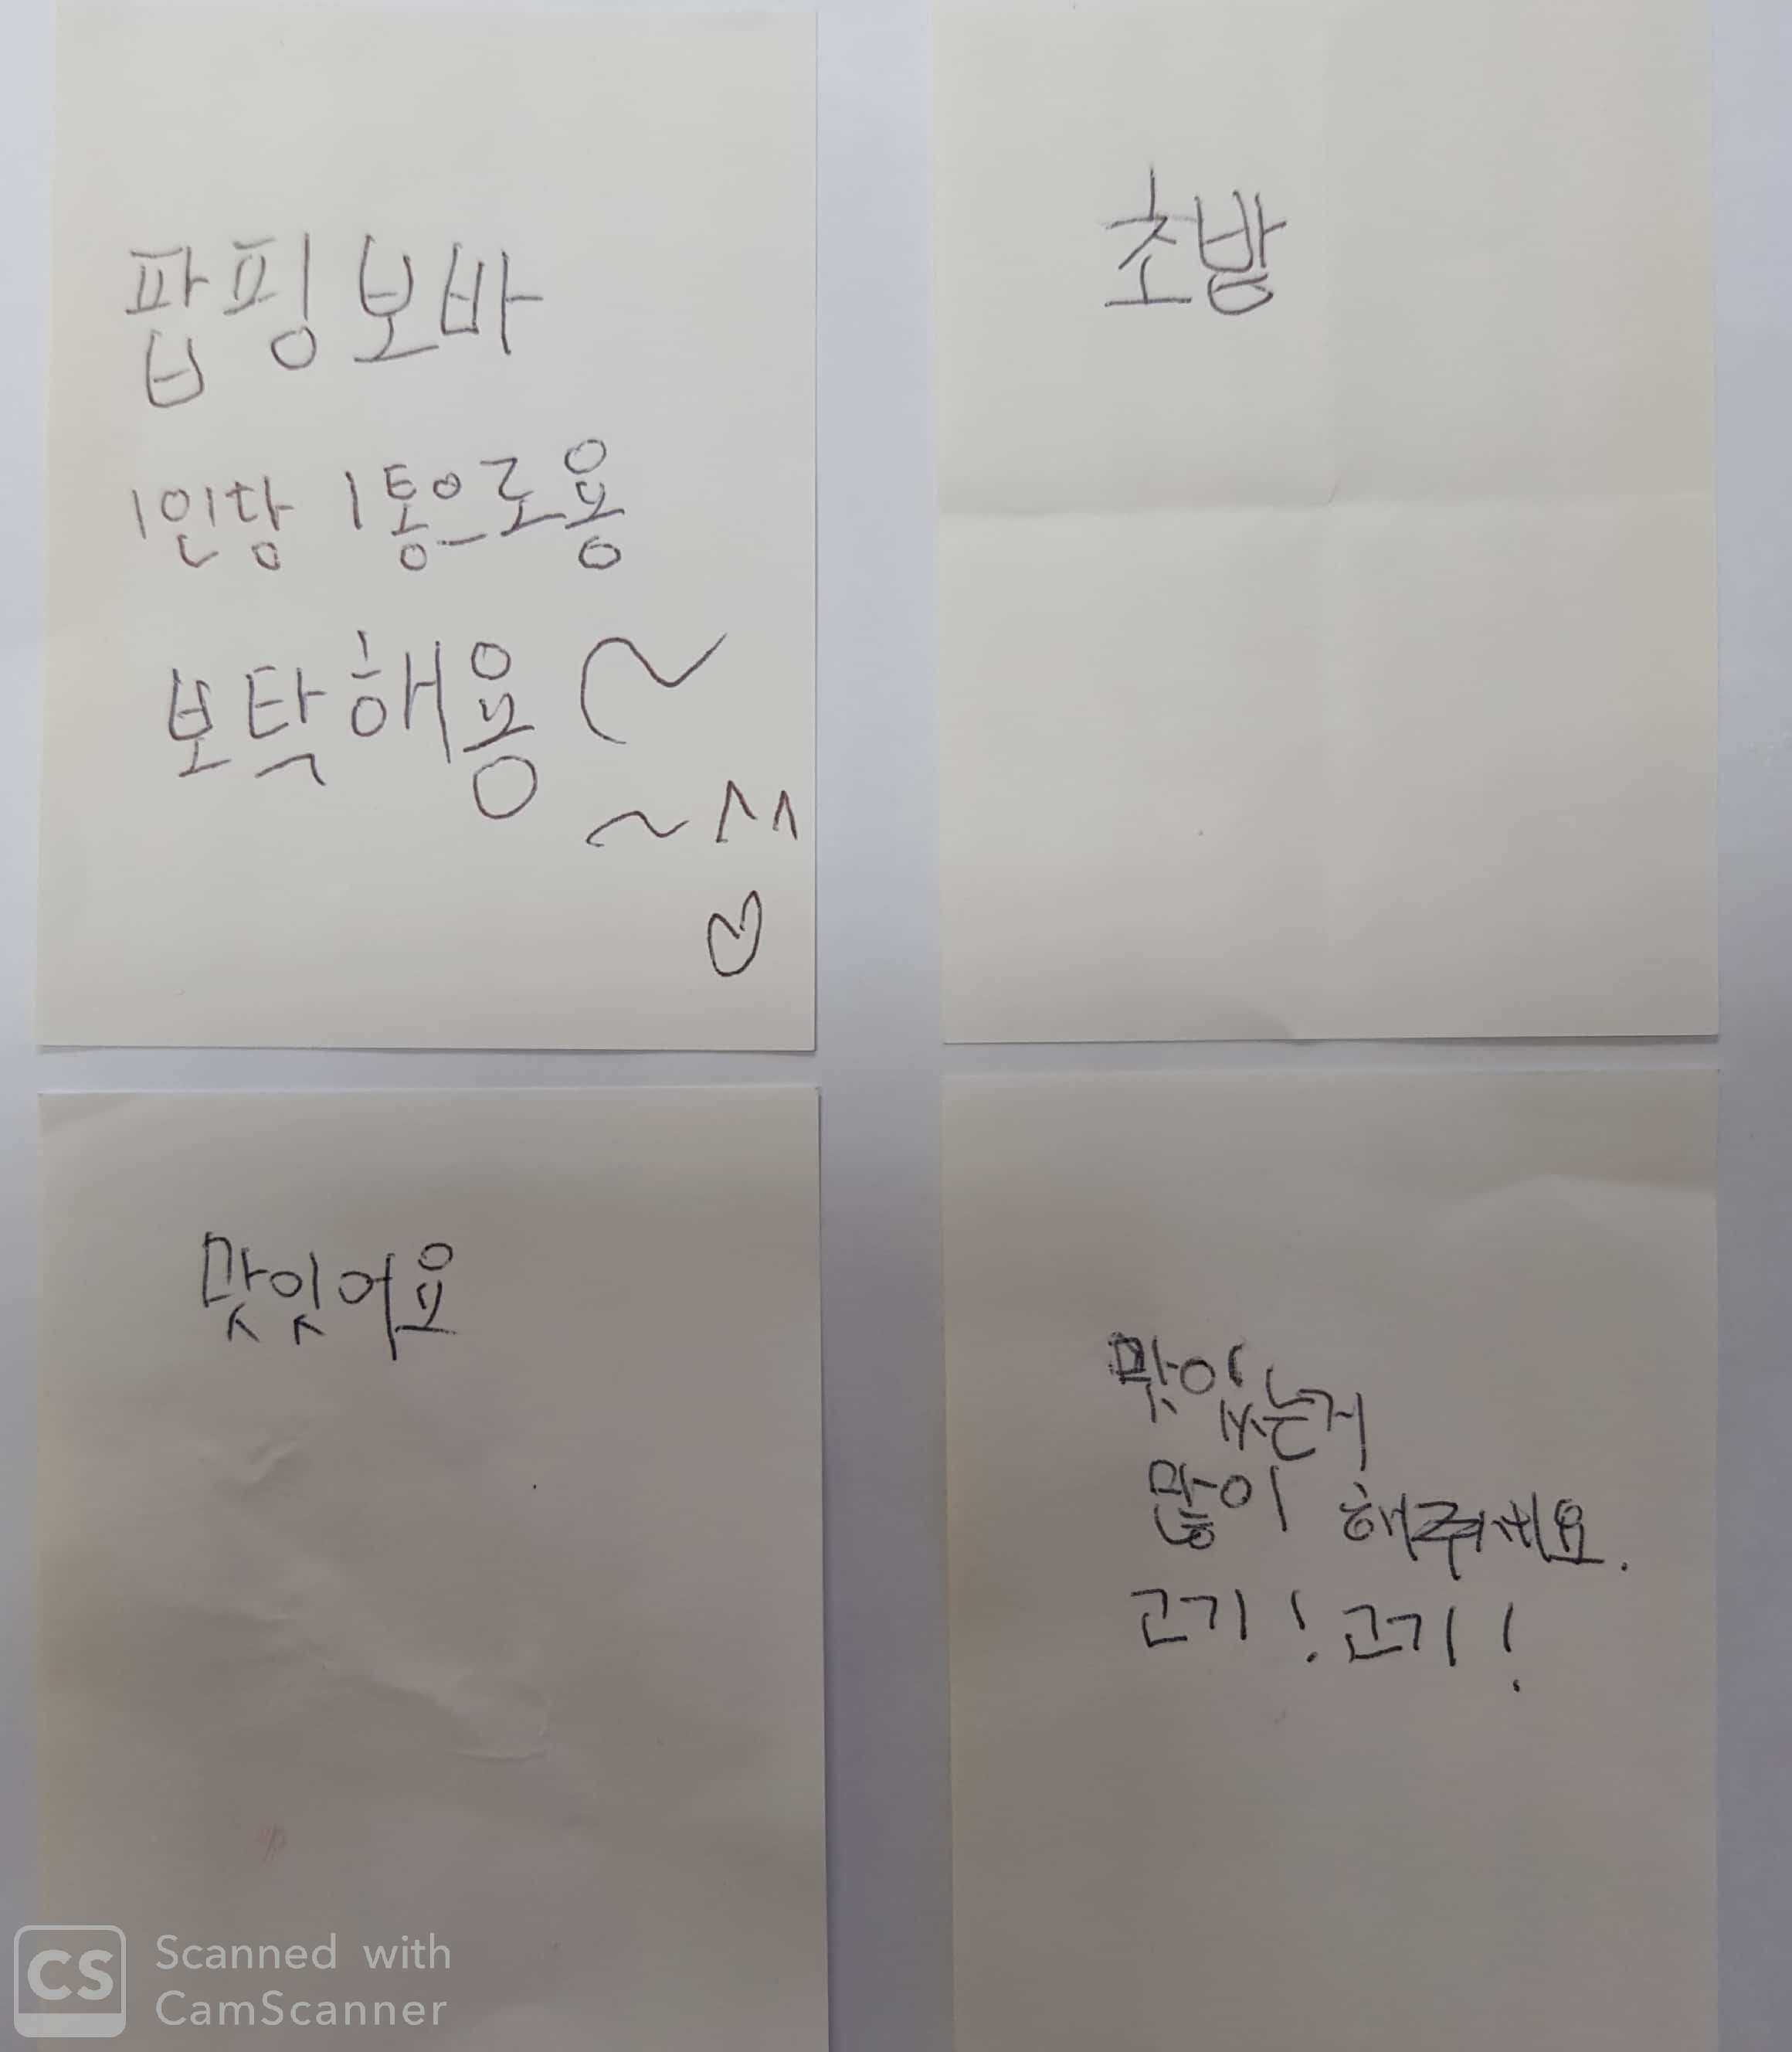 팝핑보바
1인당 1통으로용
보탁해용~
~^^
♡
초밥
맛잇어요
맛있는거
많이 해주세요.
고기! 고기!
CS Scanned with
CamScanner